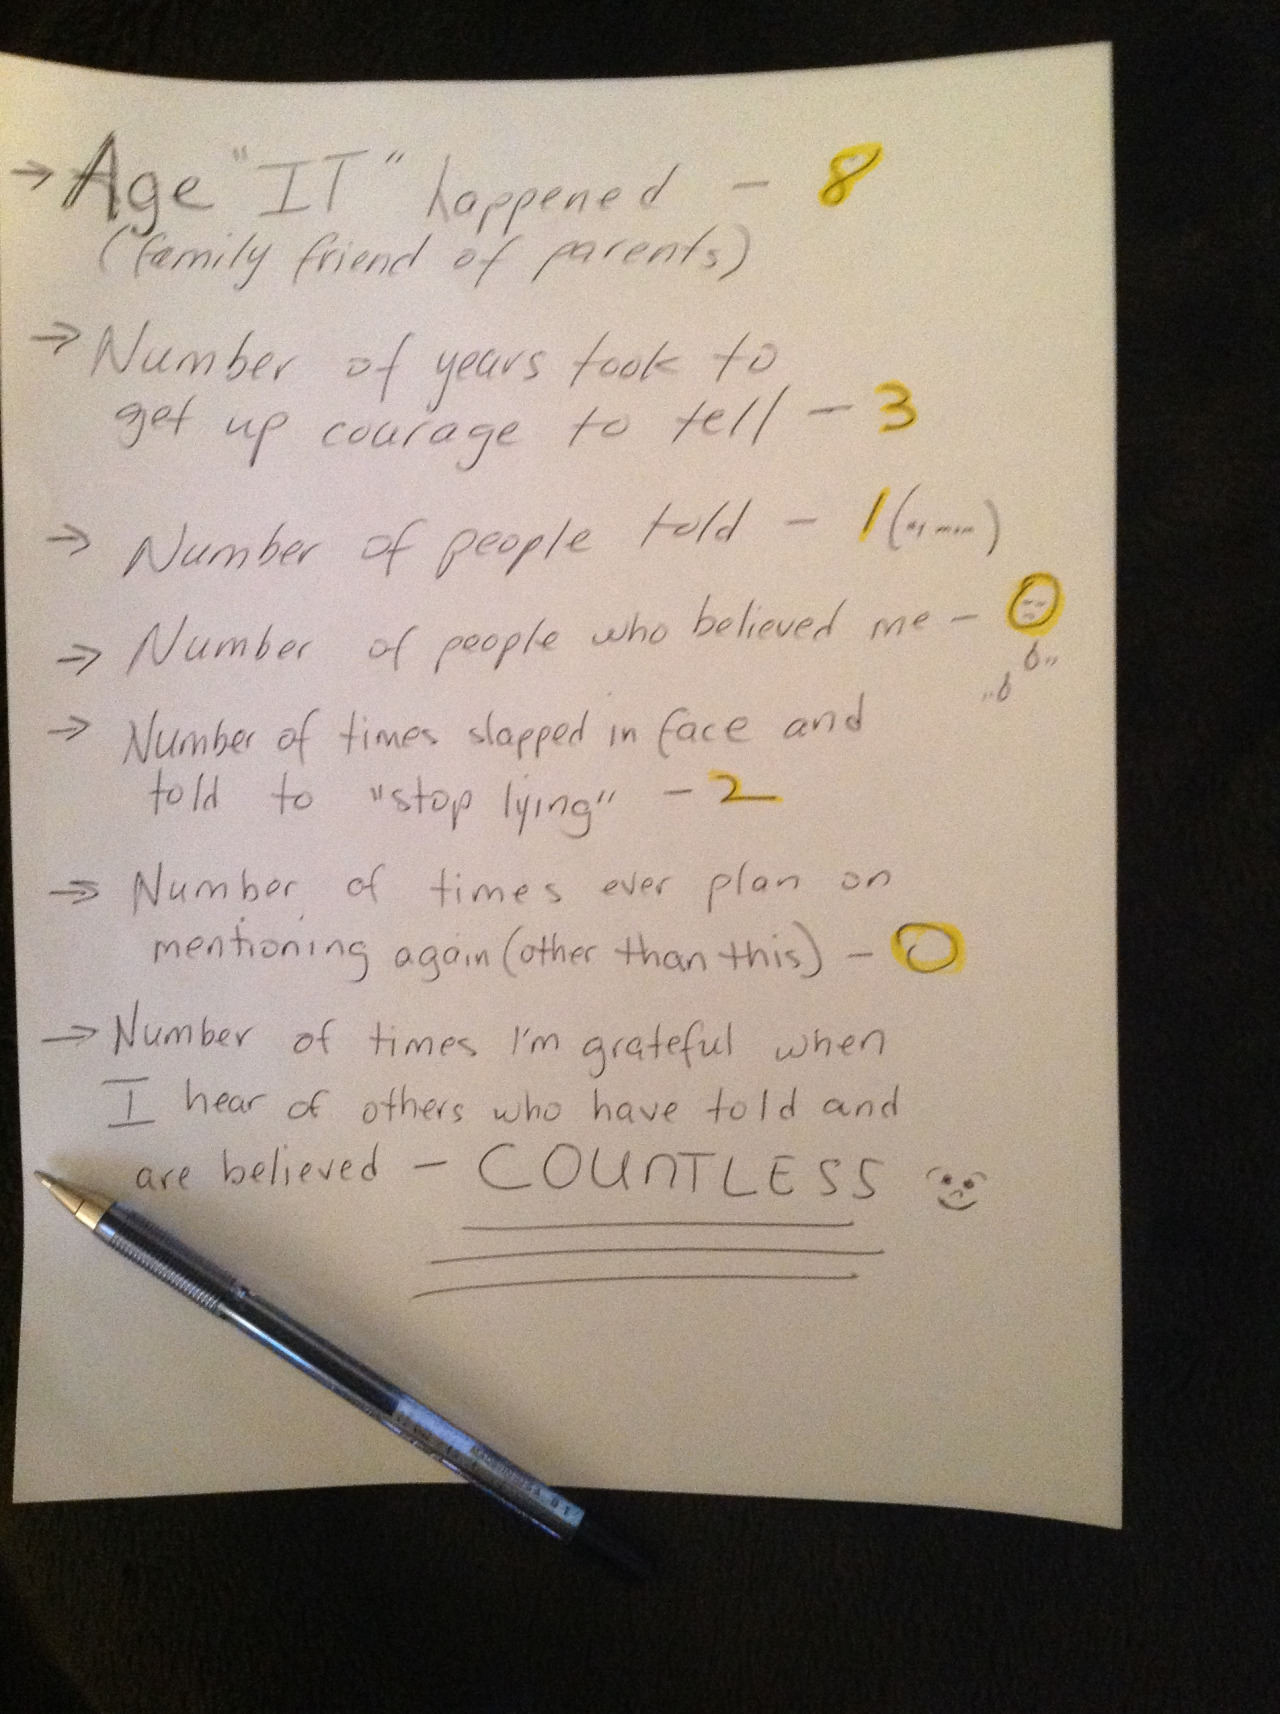 → Age "IT" happened - 8
(family friend of parents)
→ Number of years took to
get up courage to tell - 3
→ Number of people told - 1 (my mom)
→ Number of people who believed me - 0
→ Number of times slapped in face and
told to "stop lying" - 2
→ Number of times ever plan on
mentioning again (other than this) - 0
→ Number of times I'm grateful when
I hear of others who have told and
are believed - COUNTLESS